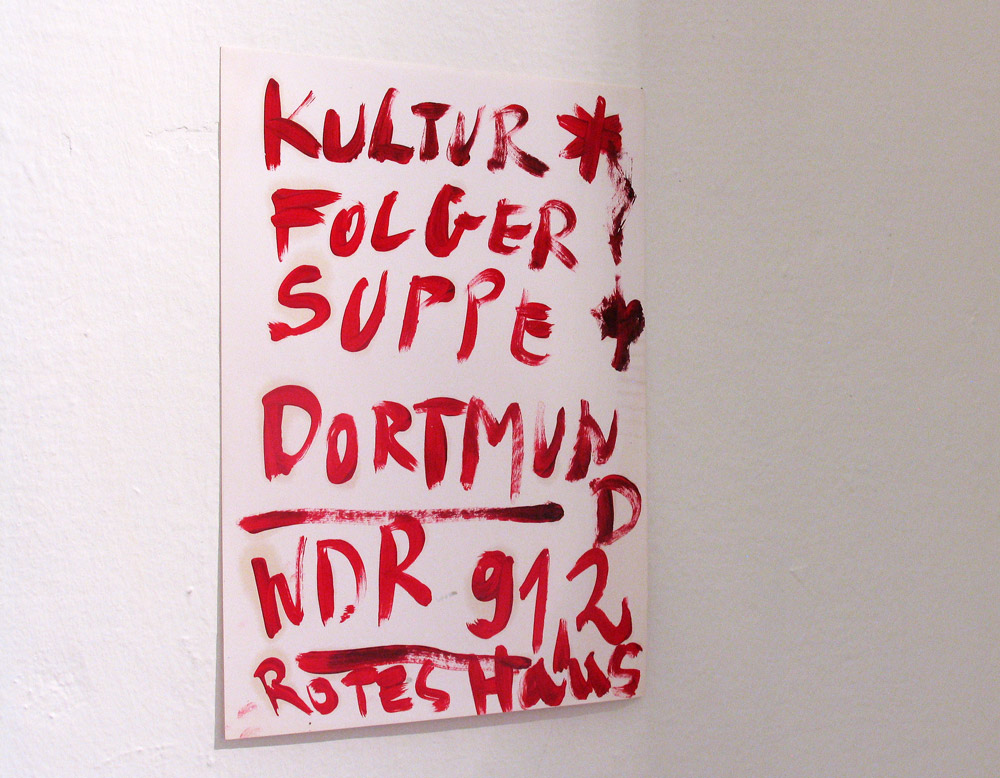 KULTUR *
FOLGER
SUPPE
DORTMUND
WDR 912
ROTES HAUS